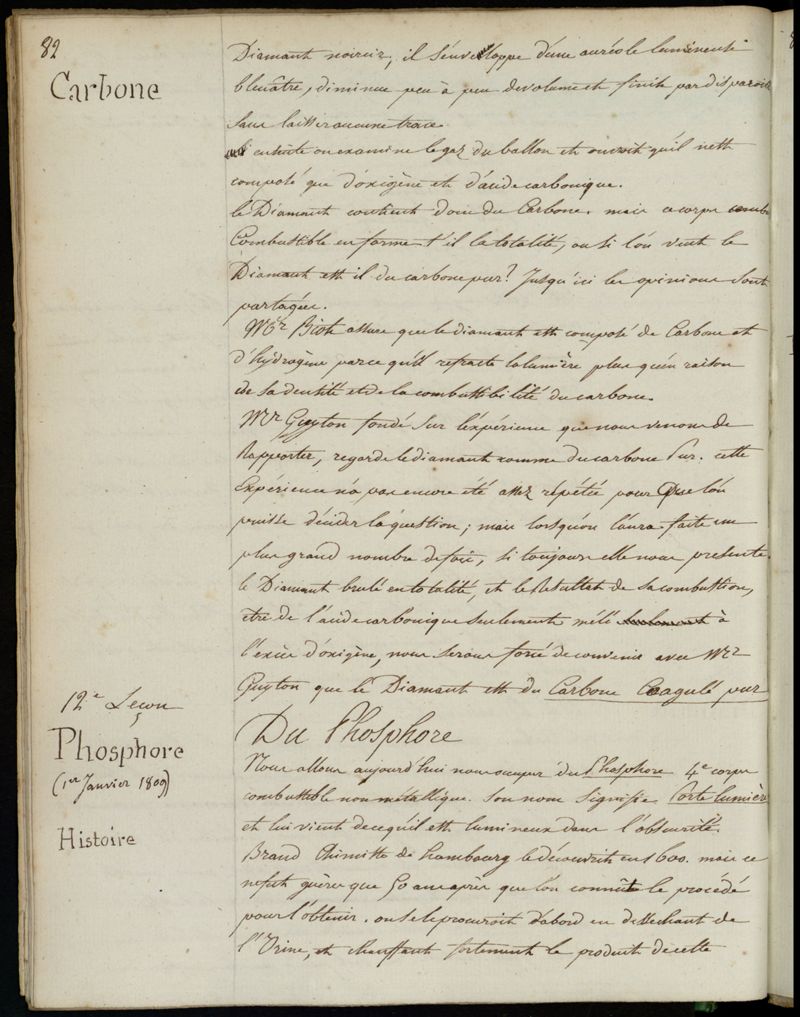 82
Carbone
Diamant noircir, il s'enveloppe d'une auréole lumineuse
bleuâtre, diminue peu à peu de volume et finit par disparoitre
sans laisser aucune trace.
Si ensuite on examine le gaz du ballon et on voit qu'il n'est
composé que d'oxigène et d'acide carbonique.
le Diamant contient donc du Carbone. mais ce corps
Combustible en forme-t'il la totalité, ou si l'on veut le
Diamant est il du carbone pur? Jusqu'ici les opinions sont
partagées.
Mr Biot assure que le diamant est composé de Carbone et
d'hydrogène parce qu'il refracte la lumière plus qu'en raison
de sa densité et de la combustibilité du carbone.
Mr Guyton fondé sur l'expérience que nous venons de
Rapporter, regarde le diamant comme du carbone Pur. cette
Expérience n'a pas encore été assez répétée pour que l'on
puisse décider la question; mais lorsqu'on l'aura faite un
plus grand nombre de fois, si toujours elle nous presente
le Diamant brulé en totalité, et le Resultat de sa combustion,
etre de l'acide carbonique seulement mêlé à
l'excès d'oxigène, nous serons forcé de convenir avec Mr
Guyton que le Diamant est du Carbone Coagulé pur
12e Leçon
Phosphore
(1er Janvier 1809)
Du Phosphore
Nous allons aujourd'hui nous occuper du Phosphore 4e corps
combustible non métallique. Son nom signifie Porte lumière
et lui vient de ce qu'il est lumineux dans l'obscurité.
Histoire
Brand Chimiste de hambourg le découvrit en 1600. mais ce
ne fut guères que 50 ans après que l'on connût le procédé
pour l'obtenir. on se le procuroit d'abord en dessechant de
l'Urine, et chauffant fortement le produit de cette